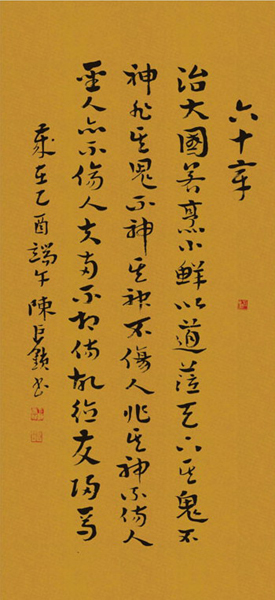 六十章
治大國若烹小鮮以道莅天下其鬼不
神非其鬼不神其神不傷人非其神不傷人
聖人亦不傷人夫兩不相傷故德交歸焉
歲在乙酉端午陳巨鎖書